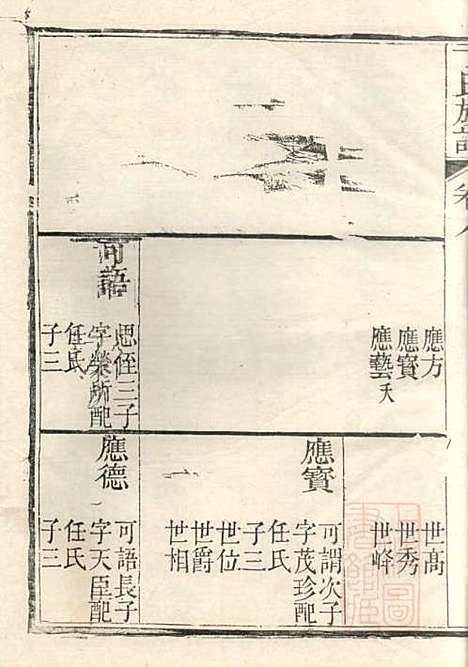 氏族譜
卷八
應方
應寶
應藝夭
可語
思侄三子
字榮所配
任氏
子三
世高
世秀
世峰
應寶
可謂次子
字茂珍配
任氏
子三
世位
世爵
世相
應德
可語長子
字天臣配
任氏
子三